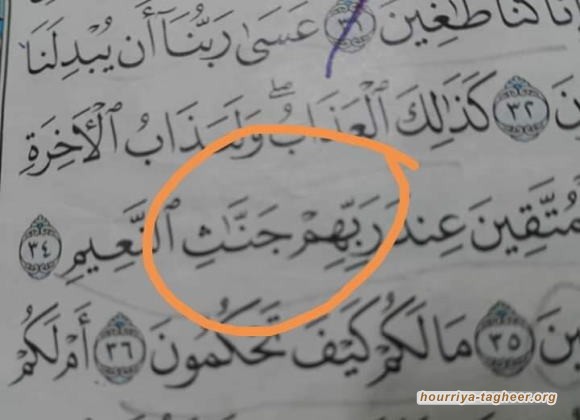 إِنَّا كُنَّا طَٰغِينَ ٣١ عَسَىٰ رَبُّنَآ أَن يُبْدِلَنَا
نَ ٣٢ كَذَٰلِكَ ٱلْعَذَابُ ۖ وَلَعَذَابُ ٱلْأَخِرَةِ
مُتَّقِينَ عِندَ رَبِّهِمْ جَنَّٰثِ ٱلنَّعِيمِ ٣٤
ينَ ٣٥ مَا لَكُمْ كَيْفَ تَحْكُمُونَ ٣٦ أَمْ لَكُمْ
hourriya-tagheer.org